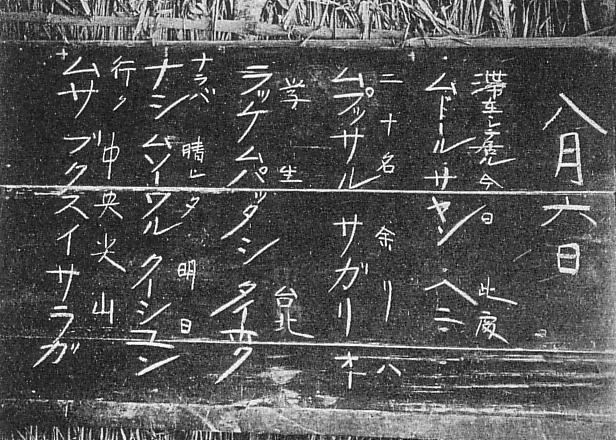 八月六日
滞在シ居ル 今日 此度
ムドール サヤン ヘニ
二十名 余リ 八
ムプッサル サガリ オ
学生 台北
ラッケム パッタシ タイホク
ナラバ 晴レタ 明日
ナシ ムソーワル クーシユン
行ク 中央尖山
ムサ ブクスイ サラガ